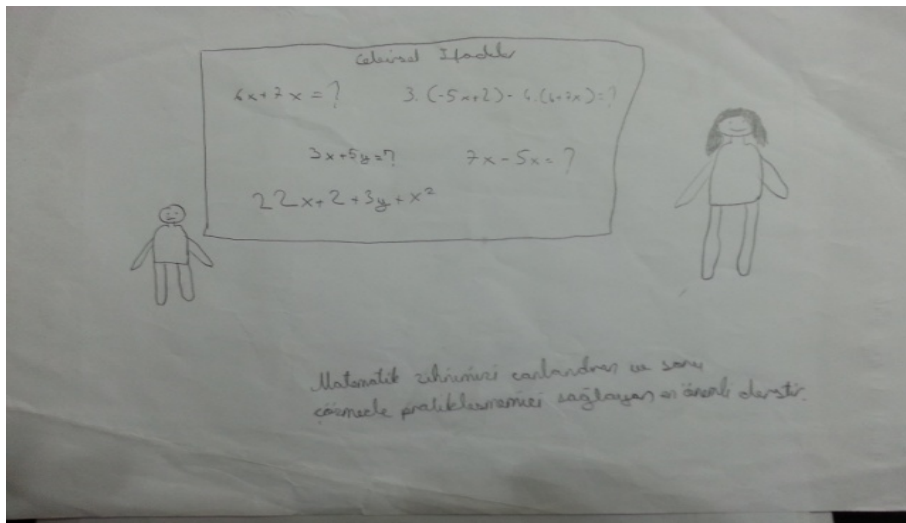 Cebirsel İfadeler
4x+7x=?
3.(-5x+2)-4.(6+7x)=?
3x+5y=?
7x-5x=?
22x+2+3y+x²
Matematik zihnimizi canlandıran ve soru
çözmede pratiklesmemizi sağlayan en önemli derstir.